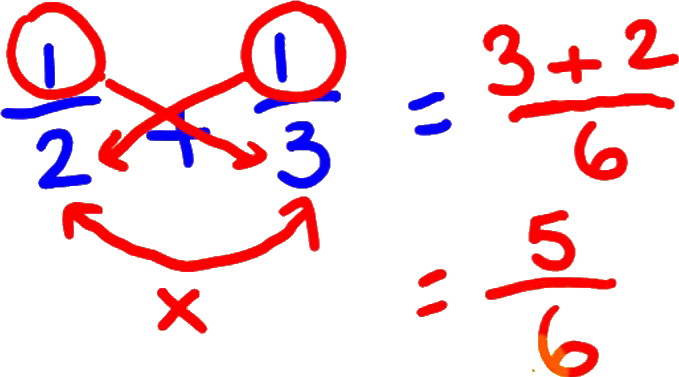 1/2 + 1/3 = (3 + 2)/6
×
= 5/6